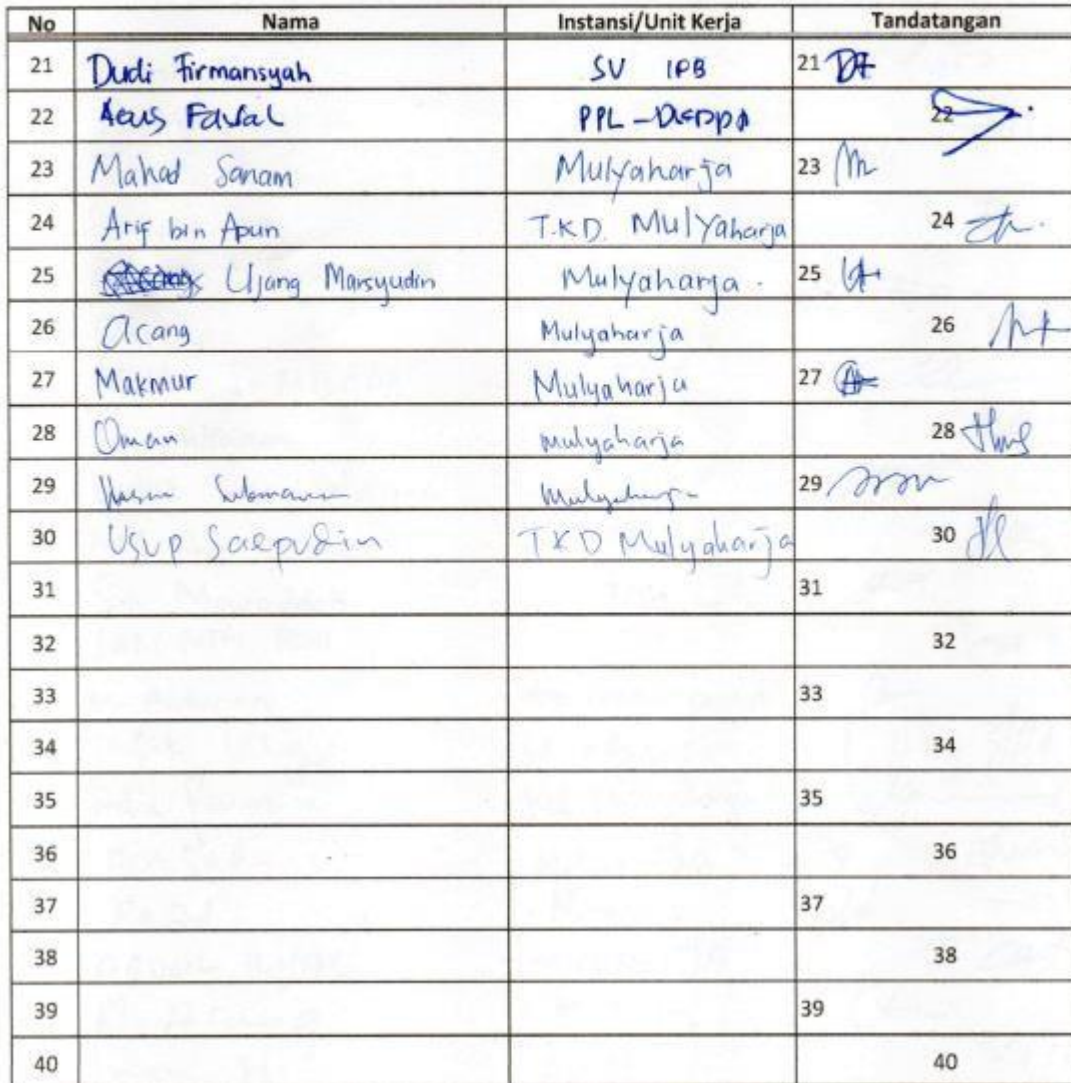 No Nama Instansi/Unit Kerja Tandatangan
21 Dudi Firmansyah SV IPB 21
22 22
23 Mahad Sanam Mulyaharja 23
24 Arif bin Apun T.K.D. Mulyaharja 24
25 Ujang Marsyudin Mulyaharja. 25
26 Acang Mulyaharja 26
27 Makmur Mulyaharja 27
28 Oman mulyaharja 28
29 Mulyaharja 29
30 Usup Saepudin TKD Mulyaharja 30
31 31
32 32
33 33
34 34
35 35
36 36
37 37
38 38
39 39
40 40